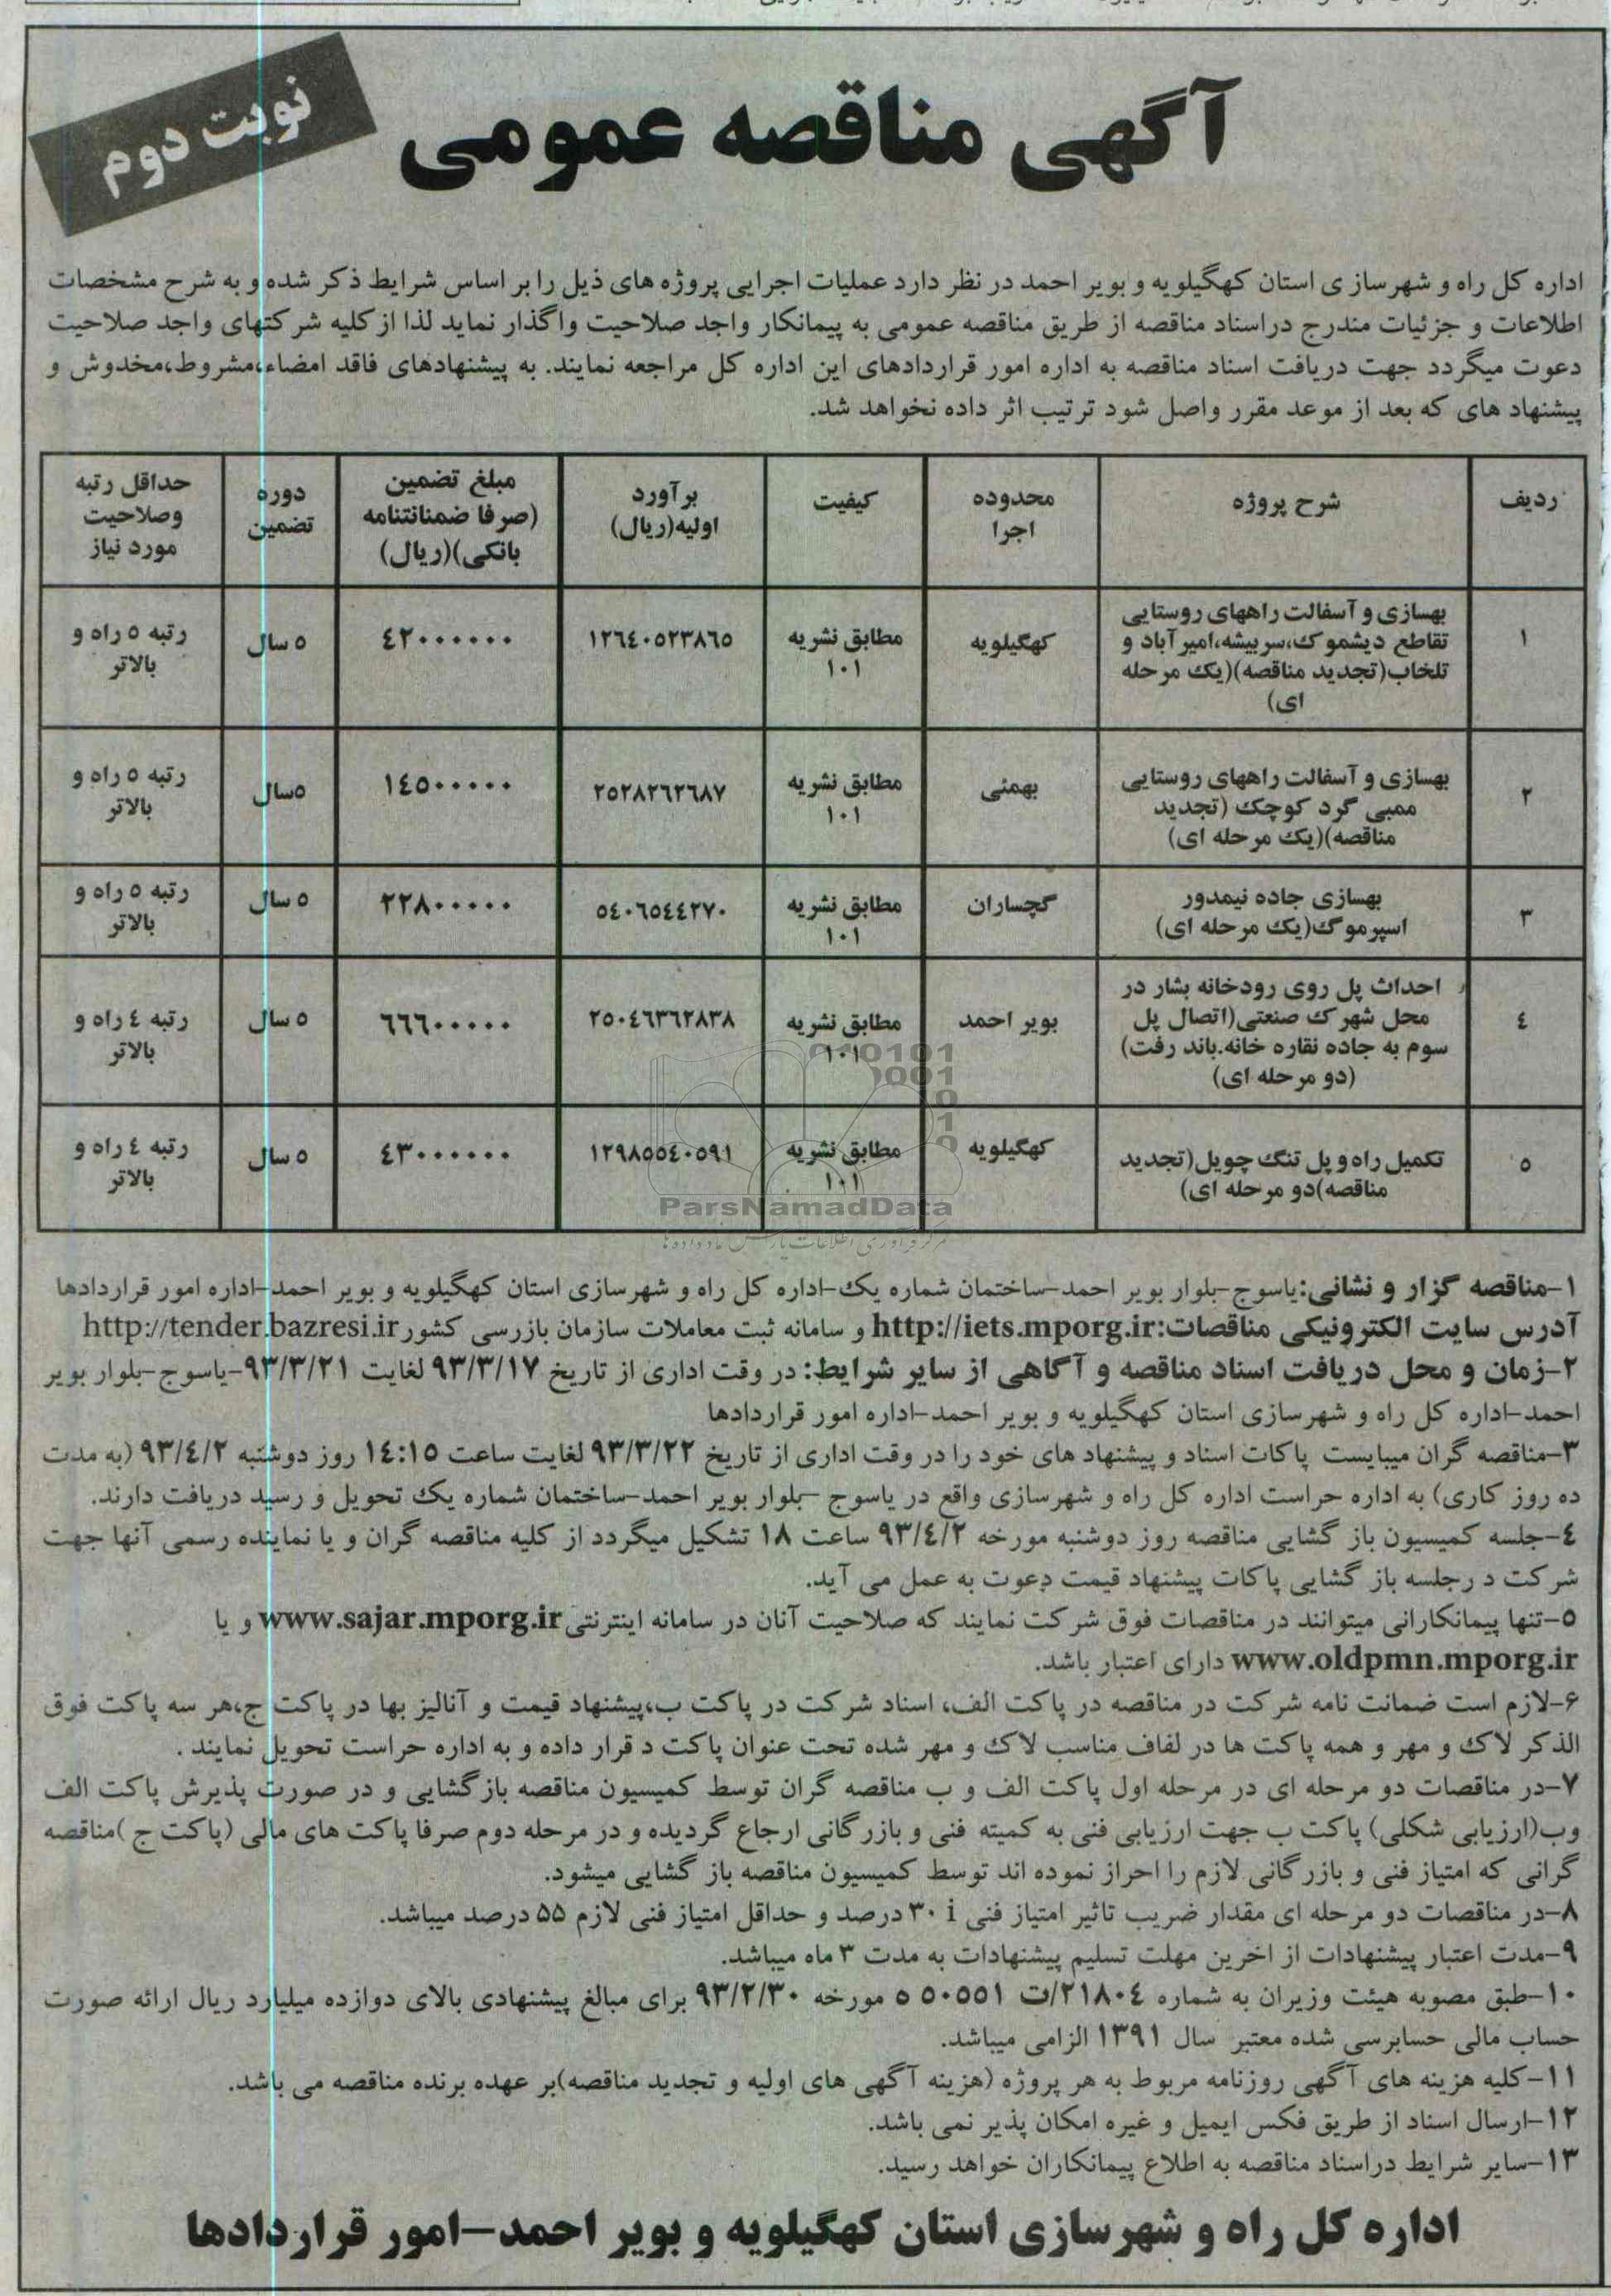 آگهی مناقصه عمومی
نوبت دوم
اداره کل راه و شهرسازی استان کهگیلویه و بویر احمد در نظر دارد عملیات اجرایی پروژه های ذیل را بر اساس شرایط ذکر شده و به شرح مشخصات
اطلاعات و جزئیات مندرج دراسناد مناقصه از طریق مناقصه عمومی به پیمانکار واجد صلاحیت واگذار نماید لذا از کلیه شرکتهای واجد صلاحیت
دعوت میگردد جهت دریافت اسناد مناقصه به اداره امور قراردادهای این اداره کل مراجعه نمایند. به پیشنهادهای فاقد امضاء،مشروط،مخدوش و
پیشنهاد های که بعد از موعد مقرر واصل شود ترتیب اثر داده نخواهد شد.
ردیف
شرح پروژه
محدوده
اجرا
کیفیت
برآورد
اولیه(ریال)
مبلغ تضمین
(صرفا ضمنانتنامه
بانکی)(ریال)
دوره
تضمین
حداقل رتبه
وصلاحیت
مورد نیاز
۱
بهسازی و آسفالت راههای روستایی
تقاطع دیشموک،سربیشه،امیر آباد و
تلخاب(تجدید مناقصه)(یک مرحله
ای)
کهگیلویه
مطابق نشریه
۱۰۱
۱۲٦٤۰۵۲۳۸٦۵
٤۲۰۰۰۰۰۰۰
۵ سال
رتبه ۵ راه و
بالاتر
۲
بهسازی و آسفالت راههای روستایی
ممبی گرد کوچک (تجدید
مناقصه)(یک مرحله ای)
بهمئی
مطابق نشریه
۱۰۱
۲۵۲۸۲٦۲٦۸۷
۱٤۵۰۰۰۰۰۰
۵سال
رتبه ۵ راه و
بالاتر
۳
بهسازی جاده نیمدور
اسپرموگ(یک مرحله ای)
گچساران
مطابق نشریه
۱۰۱
۵٤۰٦۵٤٤۲۷۰
۲۲۸۰۰۰۰۰۰
۵ سال
رتبه ۵ راه و
بالاتر
٤
احداث پل روی رودخانه بشار در
محل شهرک صنعتی(اتصال پل
سوم به جاده نقاره خانه.باند رفت)
(دو مرحله ای)
بویر احمد
مطابق نشریه
۱۰۱
۲۵۰٤٦۳٦۲۸۳۸
٦٦٦۰۰۰۰۰۰
۵ سال
رتبه ٤ راه و
بالاتر
۵
تکمیل راه و پل تنگ چویل(تجدید
مناقصه)دو مرحله ای)
کهگیلویه
مطابق نشریه
۱۰۱
۱۲۹۸۵۵٤۰۵۹۱
٤۳۰۰۰۰۰۰۰
۵ سال
رتبه ٤ راه و
بالاتر
ParsNamadData
۱-مناقصه گزار و نشانی:یاسوج-بلوار بویر احمد-ساختمان شماره یک-اداره کل راه و شهرسازی استان کهگیلویه و بویر احمد-اداره امور قراردادها
آدرس سایت الکترونیکی مناقصات:http://iets.mporg.ir و سامانه ثبت معاملات سازمان بازرسی کشور http://tender.bazresi.ir
۲-زمان و محل دریافت اسناد مناقصه و آگاهی از سایر شرایط: در وقت اداری از تاریخ ۹۳/۳/۱۷ لغایت ۹۳/۳/۲۱-یاسوج-بلوار بویر
احمد-اداره کل راه و شهرسازی استان کهگیلویه و بویر احمد-اداره امور قراردادها
۳-مناقصه گران میبایست پاکات اسناد و پیشنهاد های خود را در وقت اداری از تاریخ ۹۳/۳/۲۲ لغایت ساعت ۱٤:۱۵ روز دوشنبه ۹۳/٤/۲ (به مدت
ده روز کاری) به اداره حراست اداره کل راه و شهرسازی واقع در یاسوج -بلوار بویر احمد-ساختمان شماره یک تحویل و رسید دریافت دارند.
٤-جلسه کمیسیون باز گشایی مناقصه روز دوشنبه مورخه ۹۳/٤/۲ ساعت ۱۸ تشکیل میگردد از کلیه مناقصه گران و یا نماینده رسمی آنها جهت
شرکت د رجلسه باز گشایی پاکات پیشنهاد قیمت دعوت به عمل می آید.
۵-تنها پیمانکارانی میتوانند در مناقصات فوق شرکت نمایند که صلاحیت آنان در سامانه اینترنتی www.sajar.mporg.ir و یا
www.oldpmn.mporg.ir دارای اعتبار باشد.
۶-لازم است ضمانت نامه شرکت در مناقصه در پاکت الف، اسناد شرکت در پاکت ب،پیشنهاد قیمت و آنالیز بها در پاکت ج،هر سه پاکت فوق
الذکر لاک و مهر و همه پاکت ها در لفاف مناسب لاک و مهر شده تحت عنوان پاکت د قرار داده و به اداره حراست تحویل نمایند .
۷-در مناقصات دو مرحله ای در مرحله اول پاکت الف و ب مناقصه گران توسط کمیسیون مناقصه بازگشایی و در صورت پذیرش پاکت الف
وب(ارزیابی شکلی) پاکت ب جهت ارزیابی فنی به کمیته فنی و بازرگانی ارجاع گردیده و در مرحله دوم صرفا پاکت های مالی (پاکت ج )مناقصه
گرانی که امتیاز فنی و بازرگانی لازم را احراز نموده اند توسط کمیسیون مناقصه باز گشایی میشود.
۸-در مناقصات دو مرحله ای مقدار ضریب تاثیر امتیاز فنی i ۳۰ درصد و حداقل امتیاز فنی لازم ۵۵ درصد میباشد.
۹-مدت اعتبار پیشنهادات از اخرین مهلت تسلیم پیشنهادات به مدت ۳ ماه میباشد.
۱۰-طبق مصوبه هیئت وزیران به شماره ۲۱۸۰٤/ت ۵۰۵۵۱ ه مورخه ۹۳/۲/۳۰ برای مبالغ پیشنهادی بالای دوازده میلیارد ریال ارائه صورت
حساب مالی حسابرسی شده معتبر سال ۱۳۹۱ الزامی میباشد.
۱۱-کلیه هزینه های آگهی روزنامه مربوط به هر پروژه (هزینه آگهی های اولیه و تجدید مناقصه)بر عهده برنده مناقصه می باشد.
۱۲-ارسال اسناد از طریق فکس ایمیل و غیره امکان پذیر نمی باشد.
۱۳-سایر شرایط دراسناد مناقصه به اطلاع پیمانکاران خواهد رسید.
اداره کل راه و شهرسازی استان کهگیلویه و بویر احمد-امور قراردادها